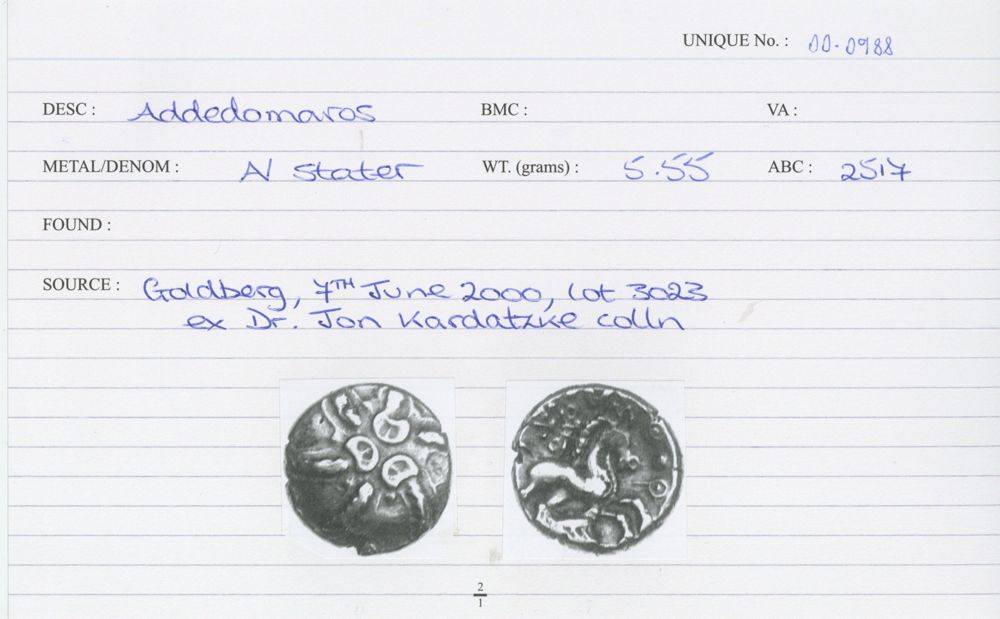 UNIQUE No. : 00-0988
DESC : Addedomaros BMC : VA :
METAL/DENOM : N stater WT. (grams) : 5.55 ABC : 2517
FOUND :
SOURCE : Goldberg, 7TH June 2000, lot 3023
ex Dr. Jon Kardatzke colln
2
1